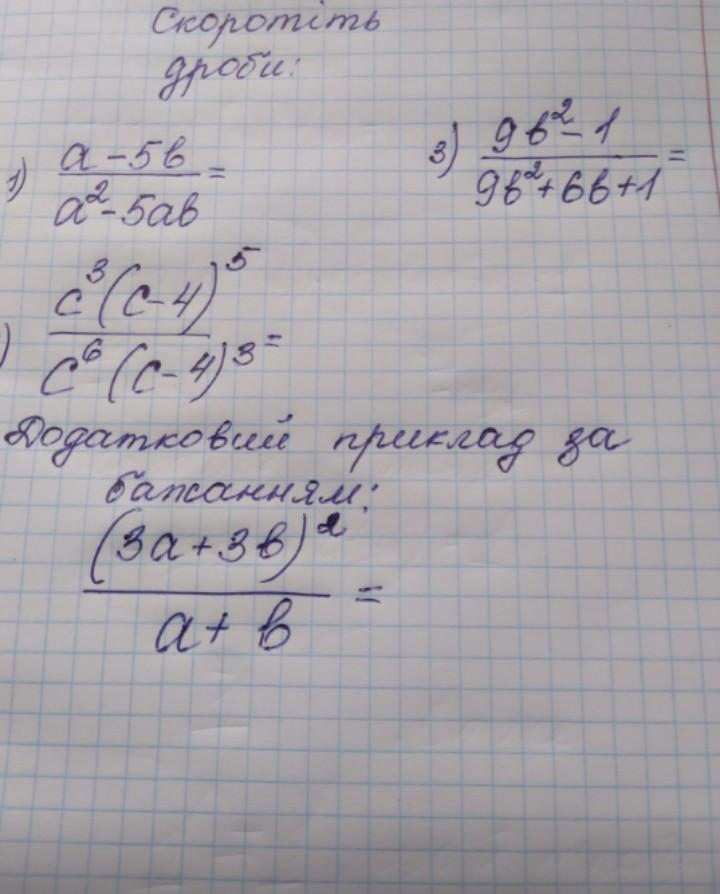 Скоротіть
дроби:
1) (a - 5b)/(a² - 5ab) =
3) (9b² - 1)/(9b² + 6b + 1) =
) c³(c - 4)⁵/c⁶(c - 4)³ =
Додатковий приклад за
бажанням:
(3a + 3b)²/(a + b) =